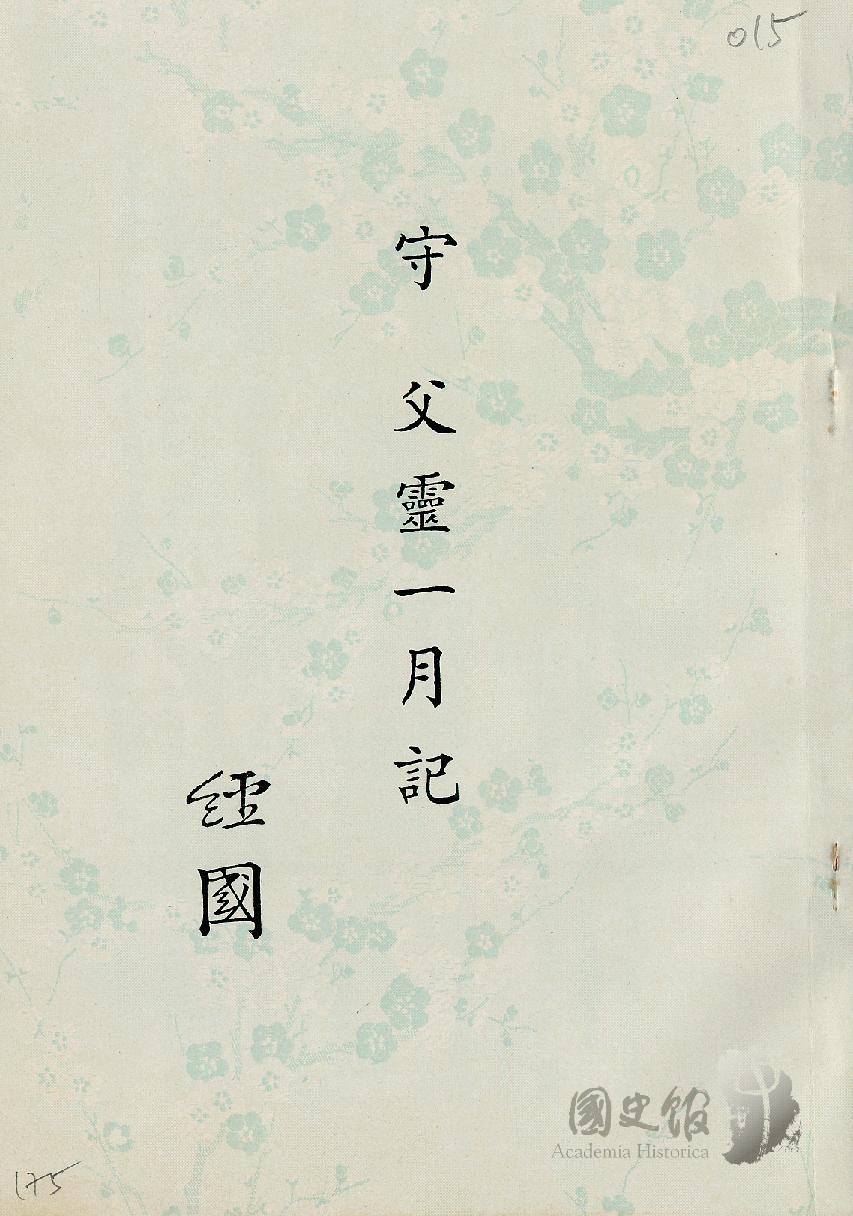 015
守 父靈一月記
經國
國史館
Academia Historica
175